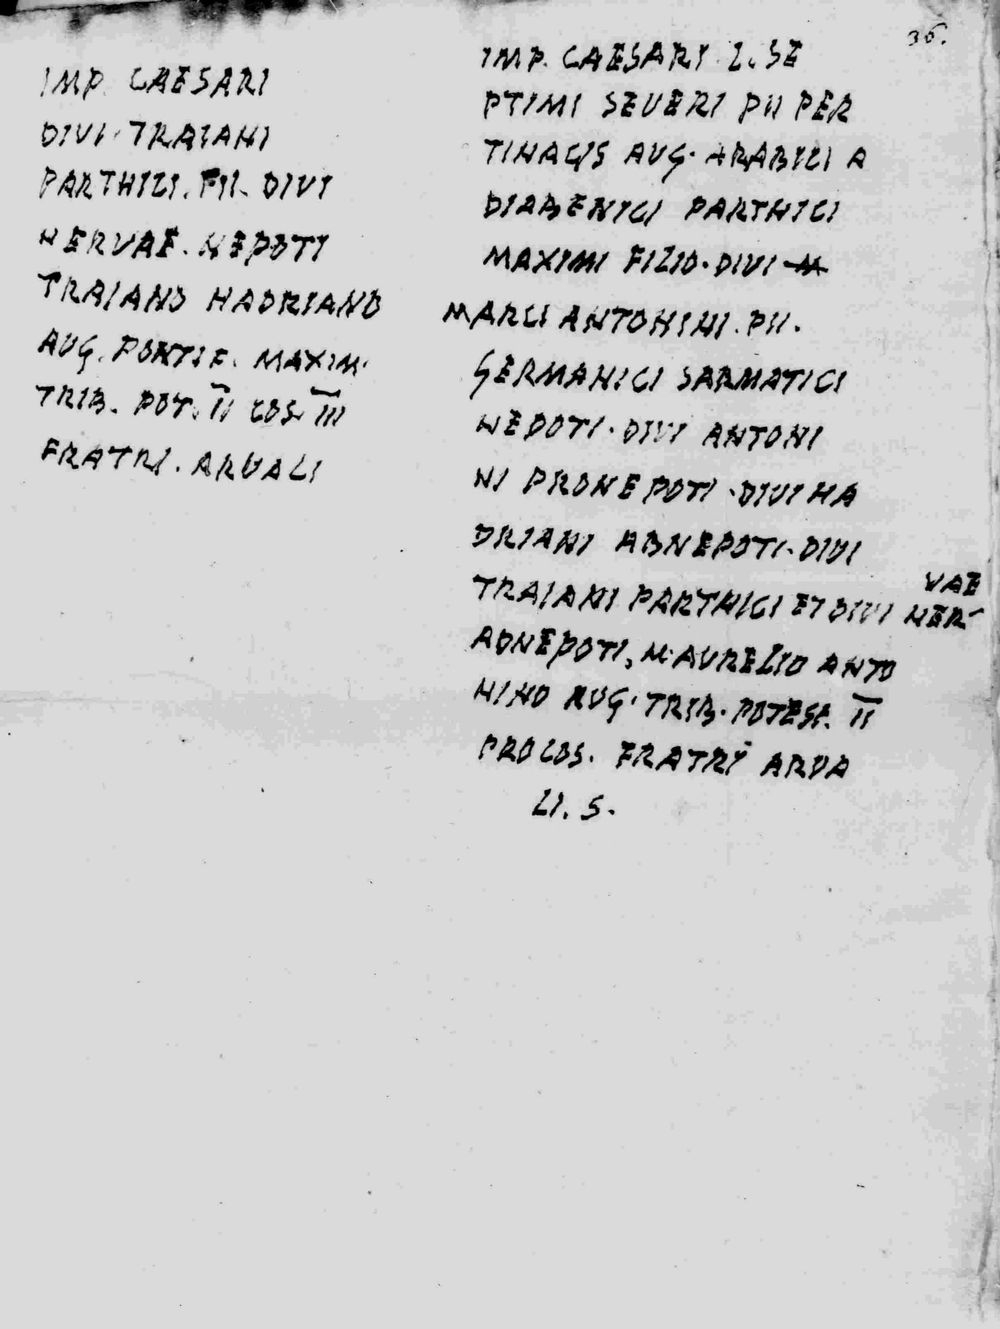 36.
IMP. CAESARI
DIVI·TRAIANI
PARTHICI. FIL. DIVI
NERVAE. NEPOTI
TRAIANO HADRIANO
AUG. PONTIF. MAXIM.
TRIB. POT. II COS. III
FRATRI. ARVALI
IMP. CAESARI. L. SE
PTIMI SEVERI PII PER
TINACIS AUG. ARABICI A
DIABENICI PARTHICI
MAXIMI FILIO·DIVI M
MARCI ANTONINI. PII.
GERMANICI SARMATICI
NEPOTI·DIVI ANTONI
NI PRONEPOTI·DIVI HA
DRIANI ABNEPOTI·DIVI
TRAIANI PARTHICI ET DIVI NER
VAE
ADNEPOTI, M·AURELIO ANTO
NINO AUG·TRIB·POTEST. II
PROCOS. FRATRI ARVA
LI. S.